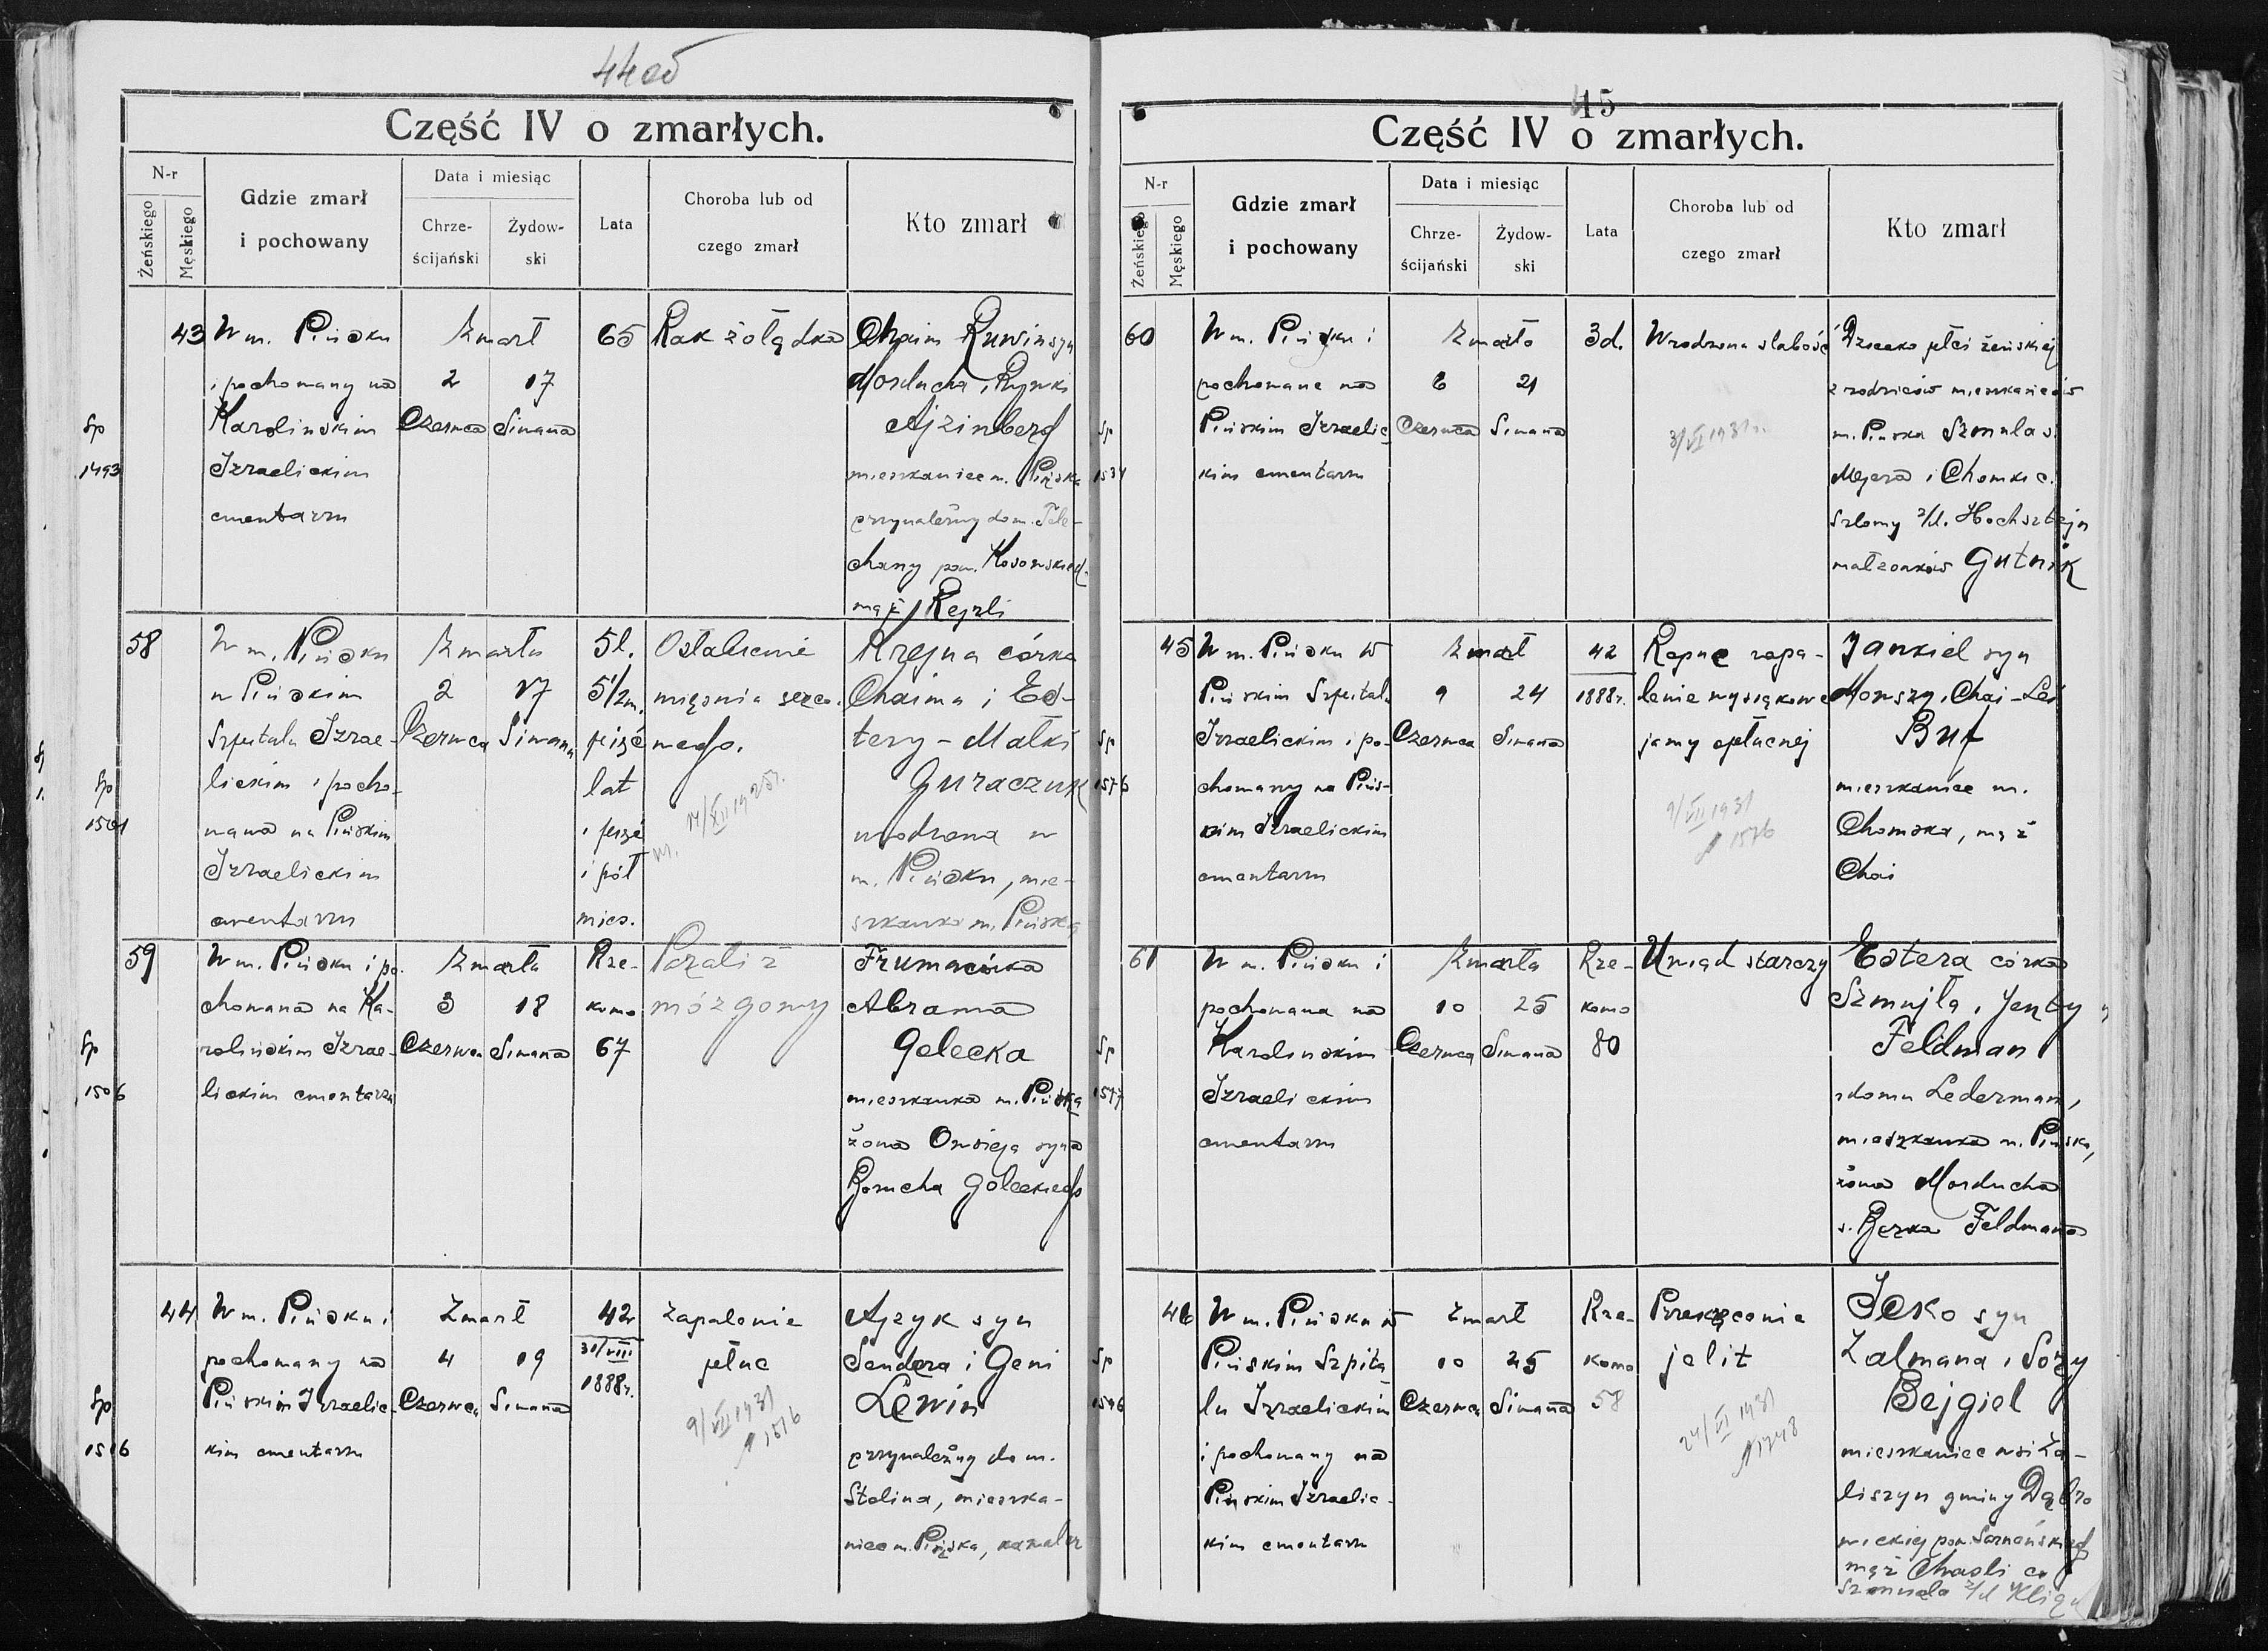 44 od
Część IV o zmarłych.
N-r
Żeńskiego
Męskiego
Gdzie zmarł
i pochowany
Data i miesiąc
Chrze-
ścijański
Żydow-
ski
Lata
Choroba lub od
czego zmarł
Kto zmarł
43
Sp
1493
W m. Pińsku
i pochowany na
Karolińskim
Izraelickim
cmentarzu
Zmarł
2
Czerwca
17
Siwana
65
Rak żołądka
Chaim Ruwin syn
Morducha i Rywki
Ajzinberg
mieszkaniec m. Pińska
przynależny do m. Tele-
chany pow. Kosowskiego
mąż Rejzli
58
Sp
1501
W m. Pińsku
w Pińskim
Szpitalu Izrae-
lickim i pocho-
wana na Pińskim
Izraelickim
cmentarzu
Zmarła
2
Czerwca
17
Siwana
5 l.
5 1/2 m.
pięć
lat
i pięć
i pół
mies.
Osłabienie
mięśnia serco-
wego.
17/XII 1925 r.
Krejna córka
Chaima i Es-
tery-Małki
Guraczuk
urodzona w
m. Pińsku, mie-
szkanka m. Pińska
59
Sp
1506
W m. Pińsku i po-
chowana na Ka-
rolińskim Izrae-
lickim cmentarzu
Zmarła
3
Czerwca
18
Siwana
Rze-
komo
67
Paraliż
mózgowy
Fruma córka
Abrama
Golecka
mieszkanka m. Pińska
żona Owsieja syna
Borucha Goleckiego
44
Sp
1516
W m. Pińsku i
pochowany na
Pińskim Izraelic-
kim cmentarzu
Zmarł
4
Czerwca
19
Siwana
42
31/VIII
1888 r.
Zapalenie
płuc
9/VII 1931
1516
Ajzyk syn
Sendera i Geni
Lewin
przynależny do m.
Stolina, mieszka-
niec m. Pińska, kawaler
45
Część IV o zmarłych.
N-r
Żeńskiego
Męskiego
Gdzie zmarł
i pochowany
Data i miesiąc
Chrze-
ścijański
Żydow-
ski
Lata
Choroba lub od
czego zmarł
Kto zmarł
60
Sp
1531
W m. Pińsku i
pochowane na
Pińskim Izraelic-
kim cmentarzu
Zmarło
6
Czerwca
21
Siwana
3 d.
Wrodzona słabość
3/VI 1931 r.
Dziecko płci żeńskiej
z rodziców mieszkańców
m. Pińska Szmula s.
Mejera i Chomki c.
Szlomy z/d. Hochsztejn
małżonków Gutnik
45
Sp
1576
W m. Pińsku w
Pińskim Szpitalu
Izraelickim i po-
chowany na Pińs-
kim Izraelickim
cmentarzu
Zmarł
9
Czerwca
24
Siwana
42
1888 r.
Ropne zapa-
lenie wysiękowe
jamy opłucnej
9/VII 1931
1576
Jankiel syn
Mowszy i Chai-Lei
Buf
mieszkaniec m.
Chomska, mąż
Chai
61
Sp
1577
W m. Pińsku i
pochowana na
Karolińskim
Izraelickim
cmentarzu
Zmarła
10
Czerwca
25
Siwana
Rze-
komo
80
Uwiąd starczy
Estera córka
Szmujła i Jenty
Feldman
z domu Lederman,
mieszkanka m. Pińska,
żona Morducha
s. Berka Feldmana
46
Sp
1546
W m. Pińsku w
Pińskim Szpita-
lu Izraelickim
i pochowany na
Pińskim Izraelic-
kim cmentarzu
Zmarł
10
Czerwca
25
Siwana
Rze-
komo
58
Przekręcenie
jelit
24/VI 1931
1748
Icko syn
Zalmana i Sory
Bejgiel
mieszkaniec wsi Za-
liszyn gminy Dąbro
wickiej pow. Sarneńskiego
mąż Chasli c.